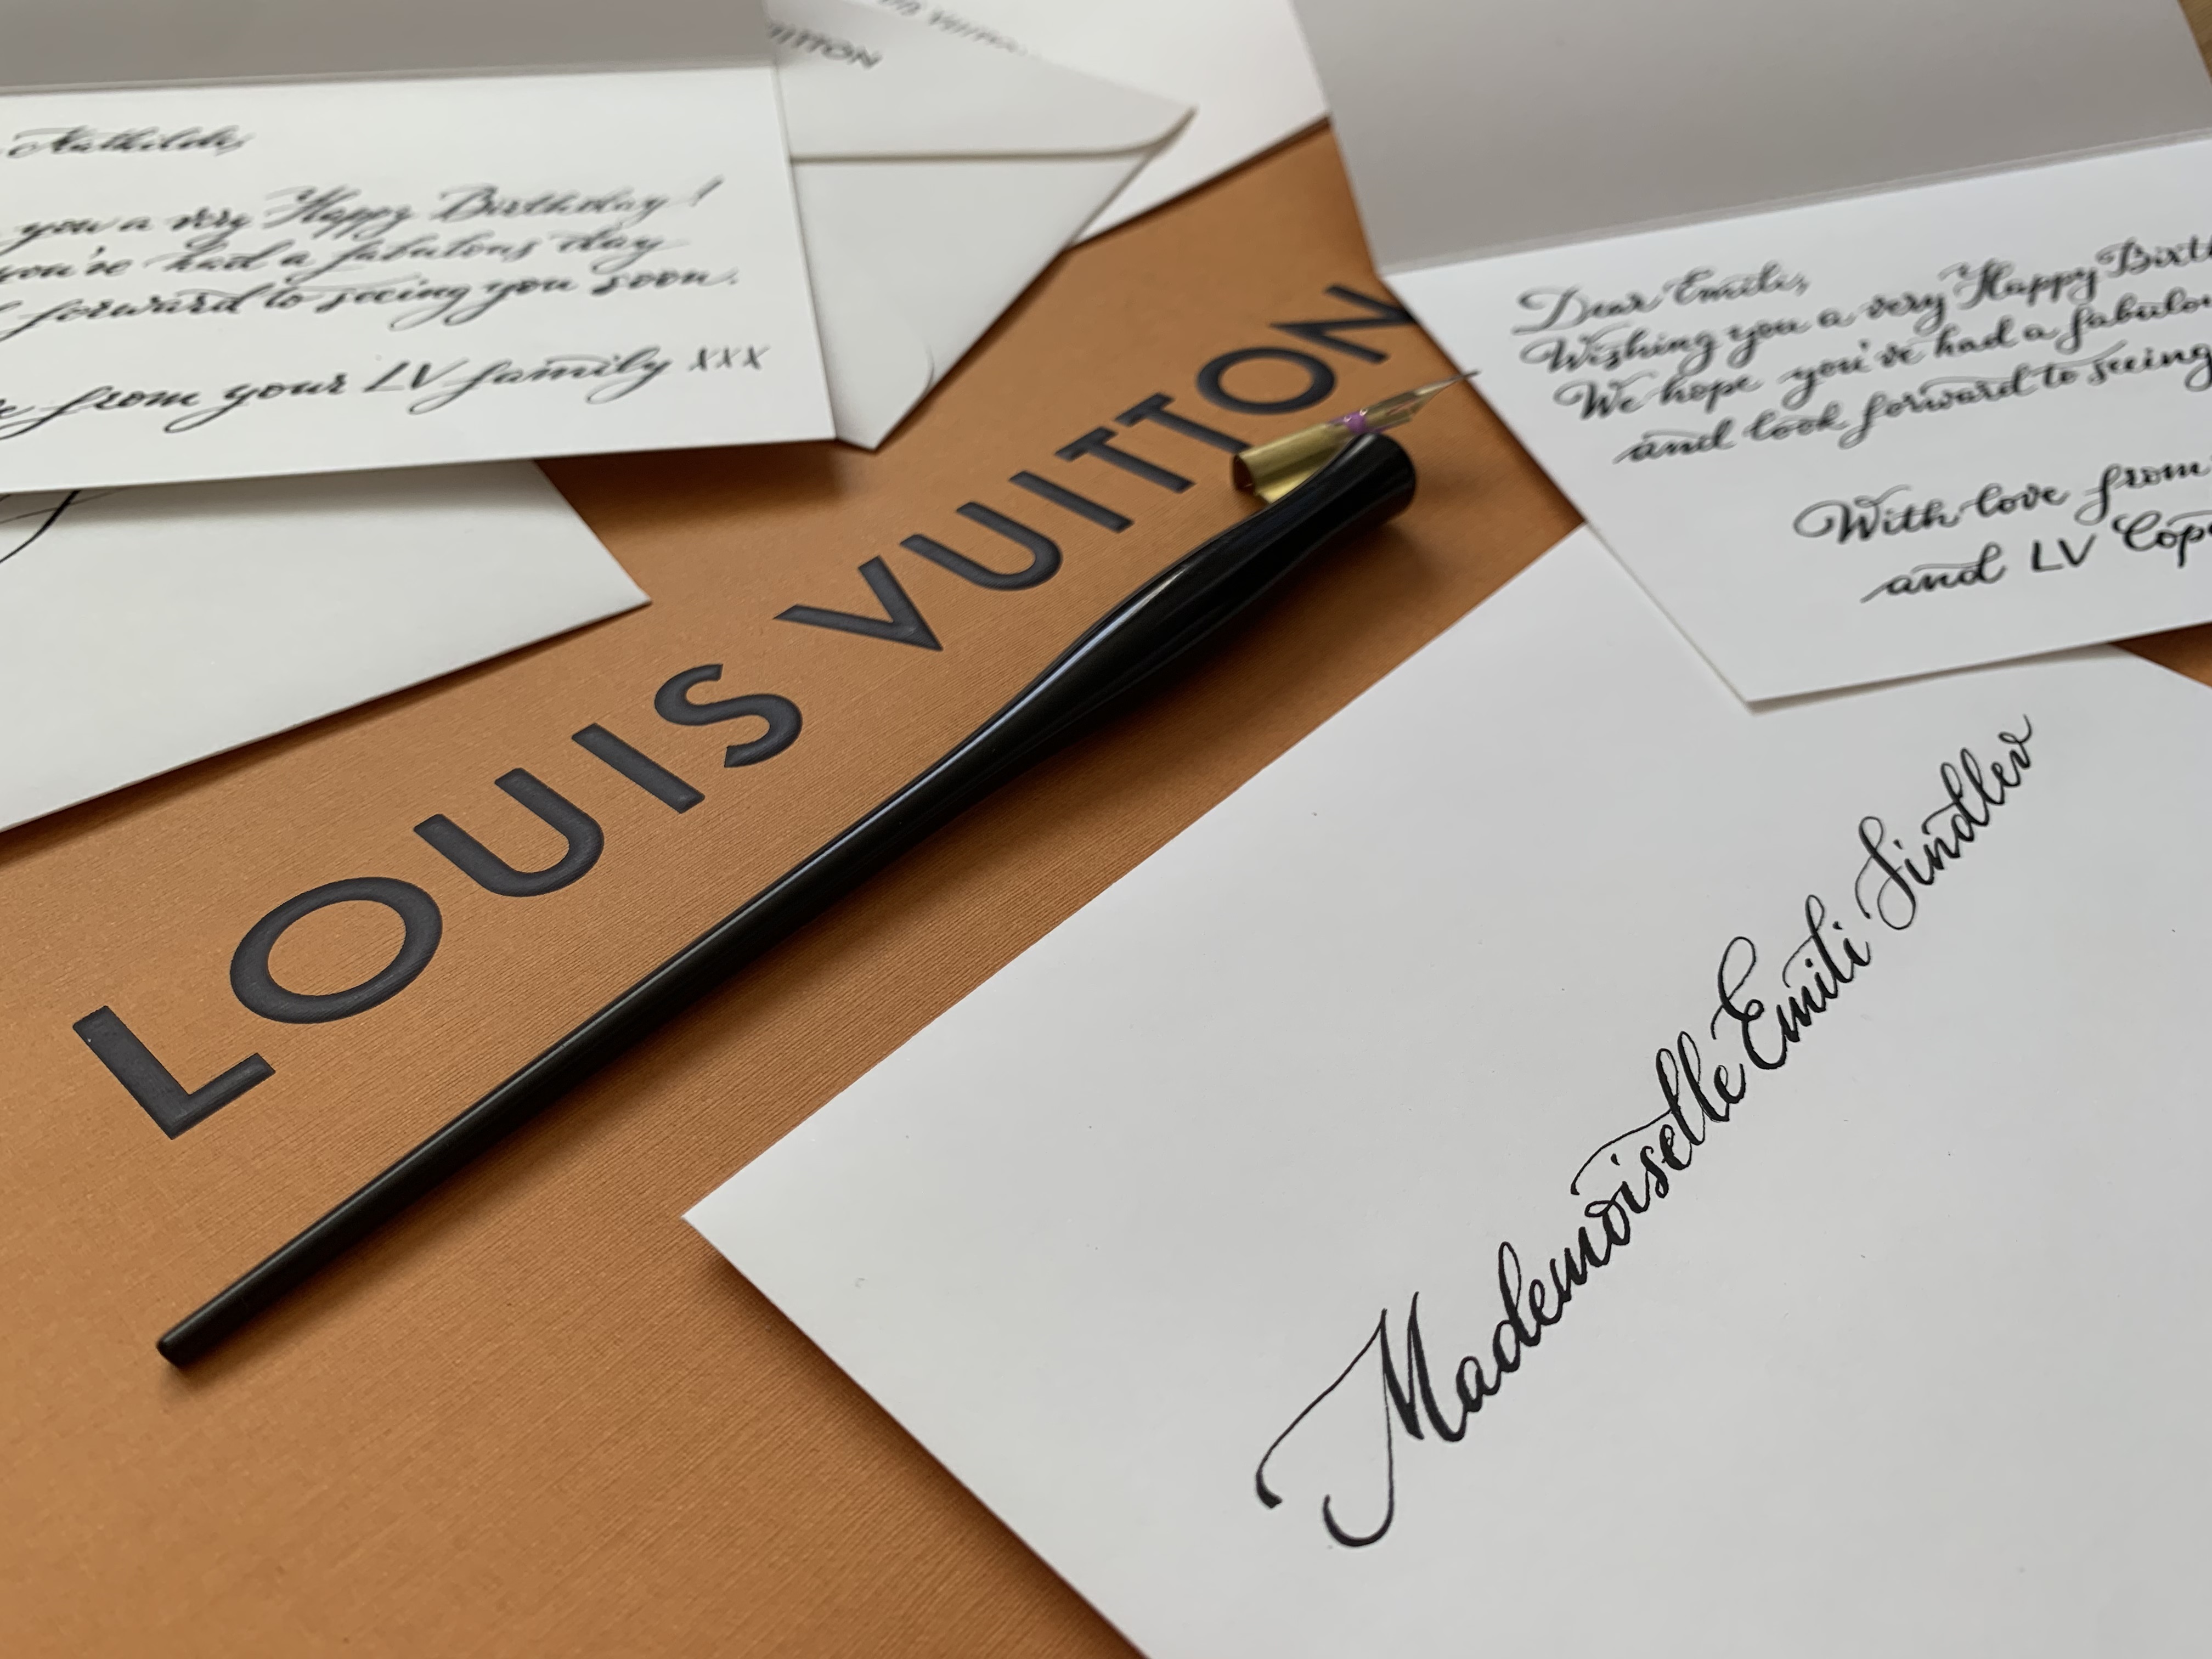 VUITTON
Mathilde,
you a very Happy Birthday!
you've had a fabulous day
forward to seeing you soon.
from your LV family xxx
LOUIS VUITTON
Dear Emili,
Wishing you a very Happy Birth
We hope you've had a fabulou
and look forward to seeing
With love from
and LV Cope
Mademoiselle Emili Sindlev